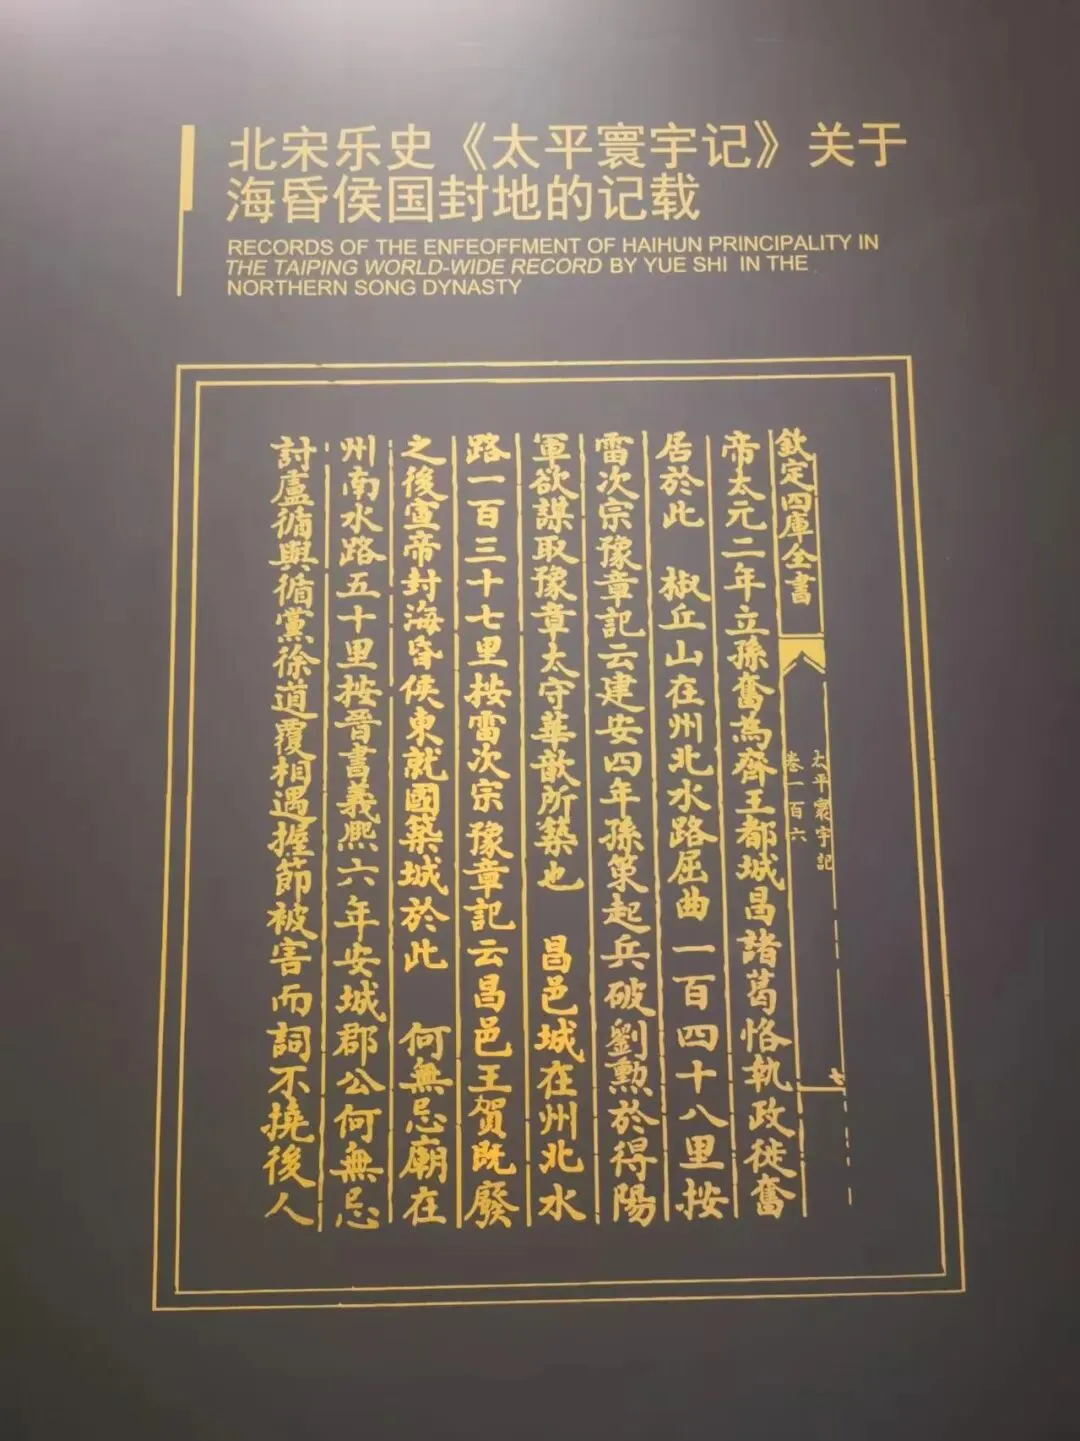 北宋乐史《太平寰宇记》关于
海昏侯国封地的记载
RECORDS OF THE ENFEOFFMENT OF HAIHUN PRINCIPALITY IN
THE TAIPING WORLD-WIDE RECORD BY YUE SHI IN THE
NORTHERN SONG DYNASTY
欽定四庫全書
太平寰宇記
卷一百六
七
帝太元二年立孫奮為齊王都城昌諸葛恪執政徙奮
居於此 椒丘山在州北水路屈曲一百四十八里按
雷次宗豫章記云建安四年孫策起兵破劉勲於得陽
軍欲謀取豫章太守華歆所築也 昌邑城在州北水
路一百三十七里按雷次宗豫章記云昌邑王賀既廢
之後宣帝封海昏侯東就國築城於此 何無忌廟在
州南水路五十里按晉書義熙六年安城郡公何無忌
討盧循與循黨徐道覆相遇握節被害而詞不撓後人